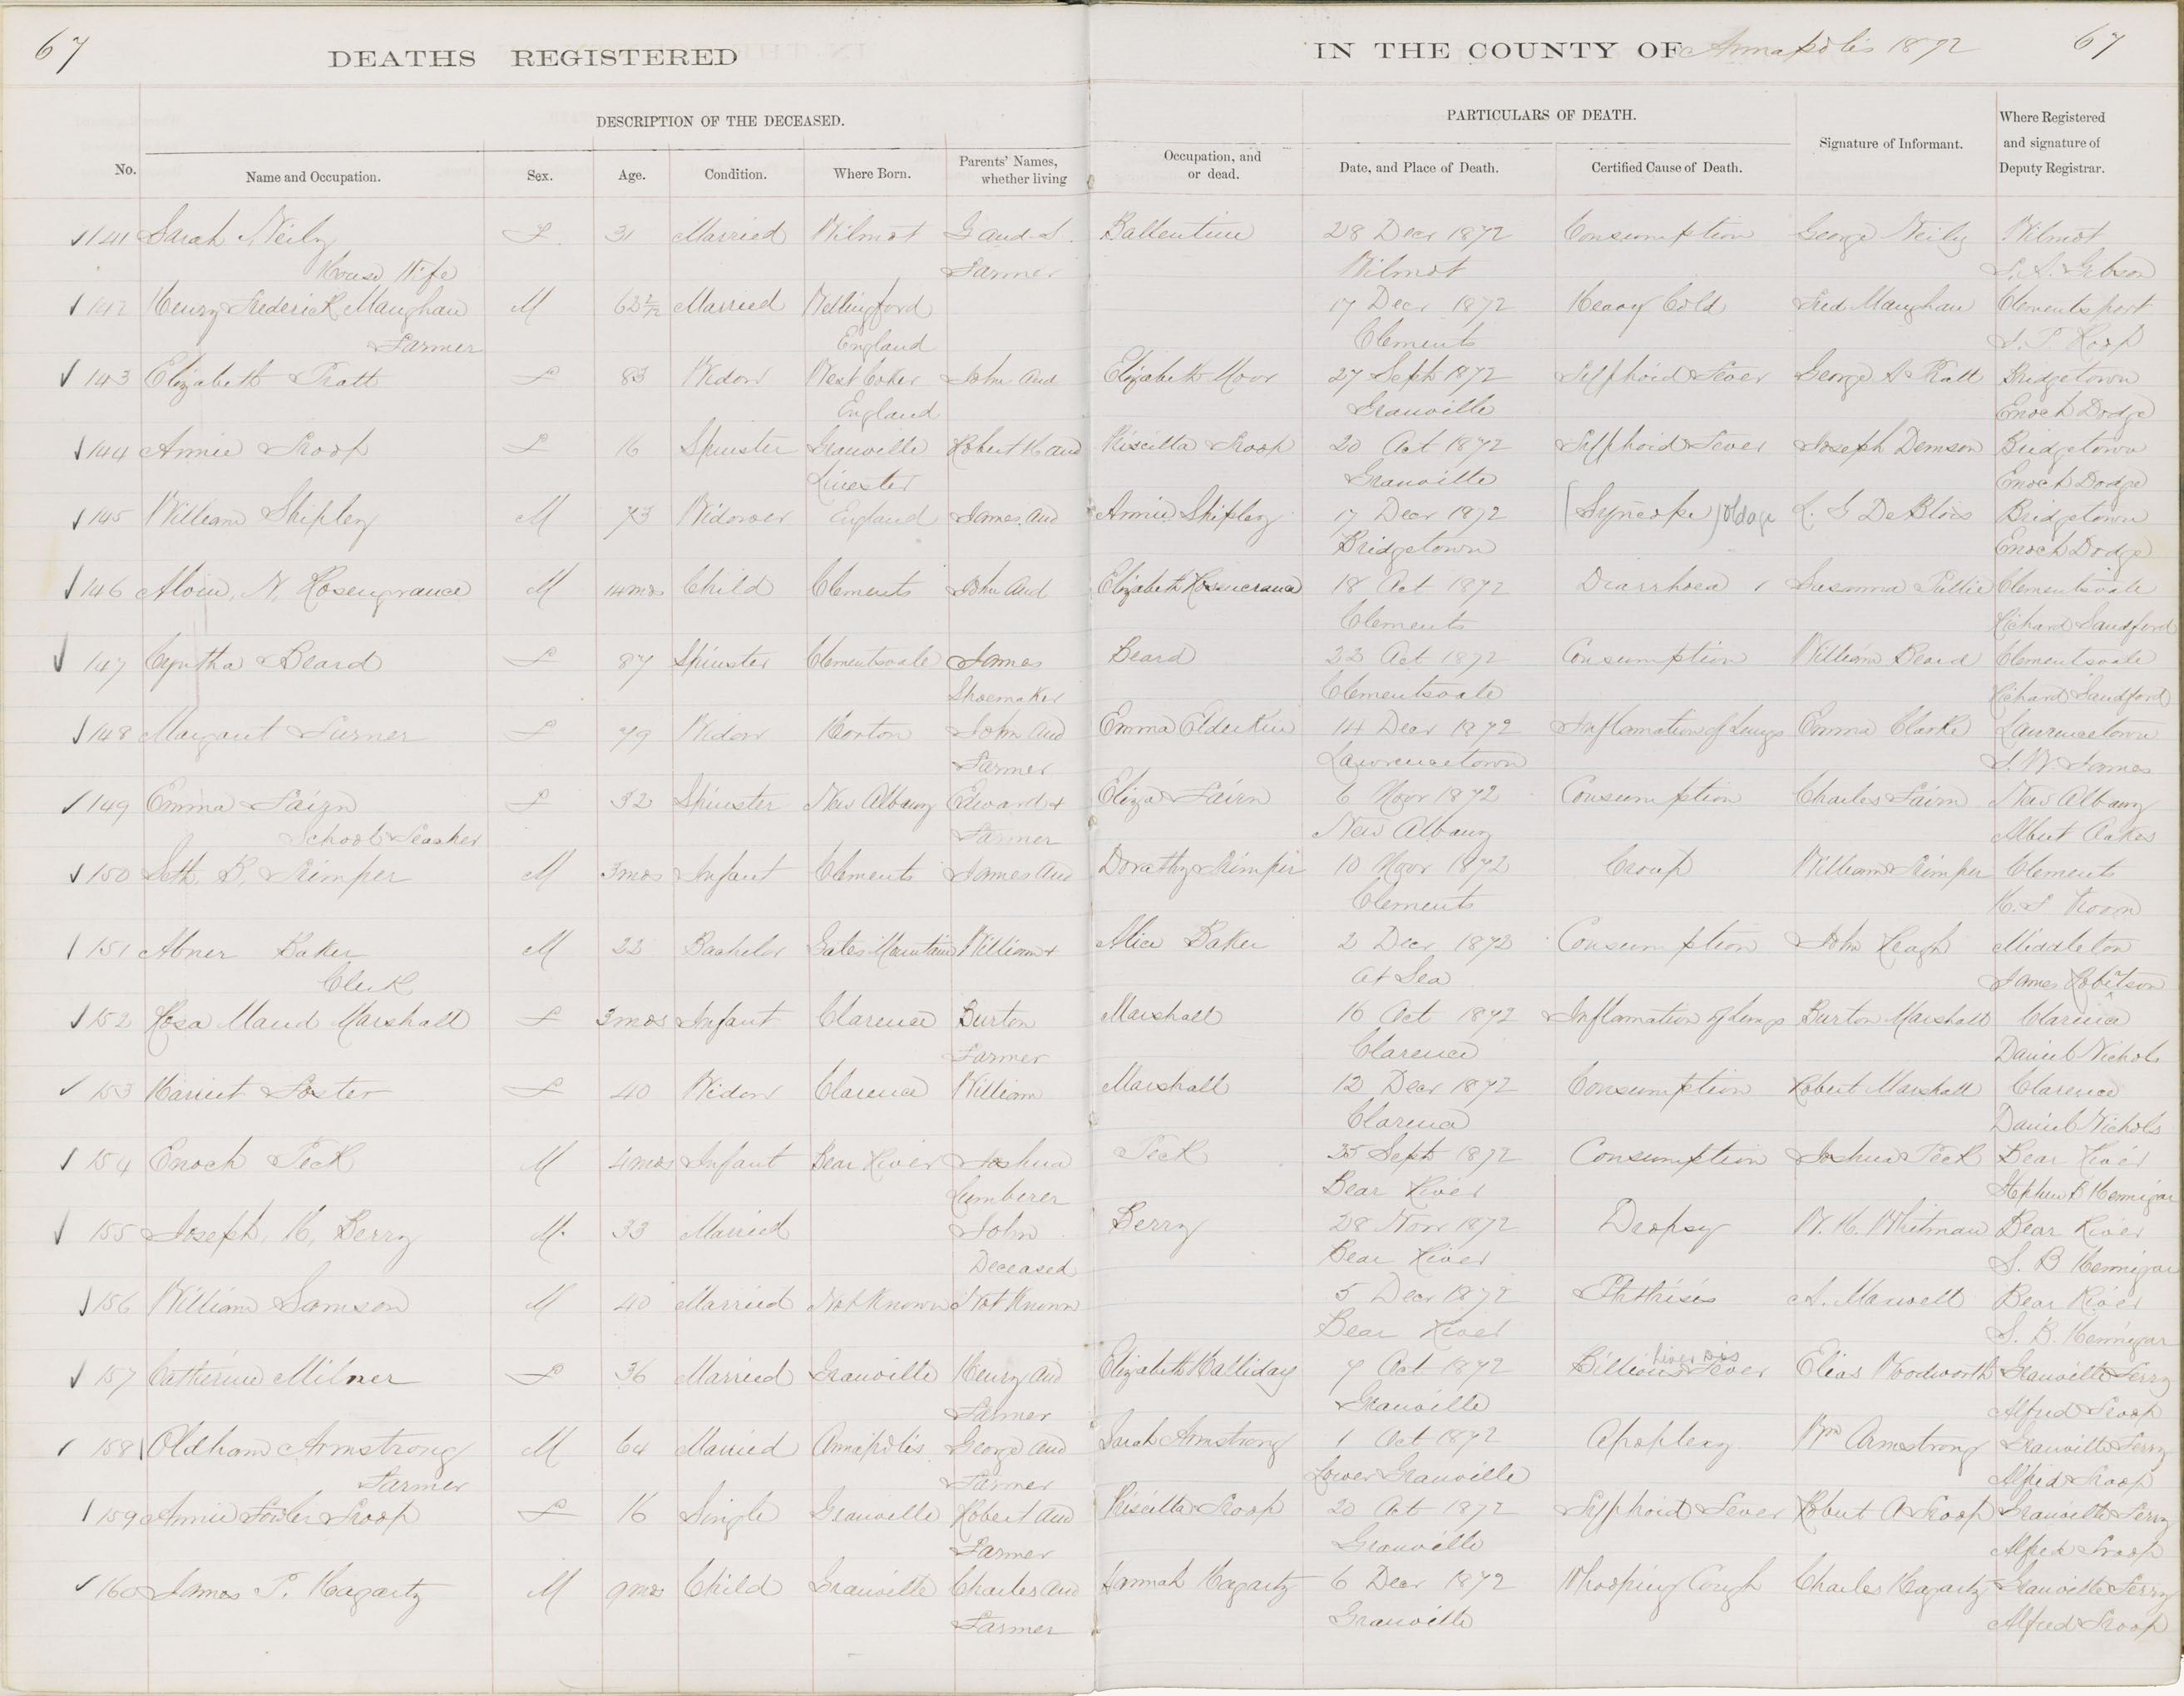 67
DEATHS REGISTERED
IN THE COUNTY OF Annapolis 1872
67
DESCRIPTION OF THE DECEASED.
PARTICULARS OF DEATH.
No.
Name and Occupation.
Sex.
Age.
Condition.
Where Born.
Parents' Names, whether living
Occupation, and or dead.
Date, and Place of Death.
Certified Cause of Death.
Signature of Informant.
Where Registered and signature of Deputy Registrar.
141 Sarah Neily F 31 Married Wilmot G and S Ballentine 28 Decr 1872 Consumption George Neily Wilmot
House Wife Farmer Wilmot
142 Henry Frederick Maughan M 62 Married England 17 Decr 1872 Heavy Cold Fred Maughan Clementsport
Farmer England Clements
143 Elizabeth Pratt F 83 Widow West Coker John and Elizabeth Moor 27 Sept 1872 Typhoid Fever George Pratt Bridgetown
England Granville Enoch Dodge
144 Annie Troop F 16 Spinster Granville Robert H and Priscilla Troop 20 Oct 1872 Typhoid Fever Joseph Demson Bridgetown
Granville Enoch Dodge
145 William Shipley M 73 Widower England James and Annie Shipley 17 Decr 1872 (Syncope) old age L. G DeBlois Bridgetown
Bridgetown Enoch Dodge
146 Alvin. N. Rosengrance M 14 mos Child Clements John and Elizabeth Rosencrance 18 Oct 1872 Diarrhoea Susanna Clementsvale
Clements Richard Sandford
147 Cyntha Beard F 87 Spinster Clementsvale James Beard 22 Oct 1872 Consumption William Beard Clementsvale
Shoemaker Clementsvale Richard Sandford
148 Margaret Turner F 79 Widow Horton John and Emma Elderkin 14 Decr 1872 Inflamation of Lungs Emma Clarke Lawrencetown
Farmer Lawrencetown J. W. James
149 Emma Fairn F 32 Spinster New Albany Edward + Eliza Fairn 6 Novr 1872 Consumption Charles Fairn New Albany
School Teacher Farmer New Albany Albert Oakes
150 Seth. B. Rimper M 3 mos Infant Clements James and Dorathy Rimper 10 Novr 1872 Croup William Rimper Clements
Clements
151 Abner Baker M 22 Bachelor Gates Mountain William + Alice Baker 2 Decr 1872 Consumption John Keagh Middleton
Clerk at Sea James Robertson
152 Rosa Maud Marshall F 3 mos Infant Clarence Burton Marshall 16 Oct 1872 Inflamation of Lungs Burton Marshall Clarence
Farmer Clarence Daniel Nichols
153 Harriet Foster F 40 Widow Clarence William Marshall 12 Decr 1872 Consumption Robert Marshall Clarence
Clarence Daniel Nichols
154 Enoch Peck M 4 mos Infant Bear River Joshua Peck 25 Sept 1872 Consumption Joshua Peck Bear River
Lumberer Bear River Stephen B Hennigar
155 Joseph. H. Berry M. 33 Married John Berry 28 Novr 1872 Dropsy W. H. Whitman Bear River
Deceased Bear River S. B Hennigar
156 William Samson M 40 Married Not Known Not Known 5 Decr 1872 Phthisis A. Maxwell Bear River
Bear River S. B. Hennigar
157 Catherine Milner F 36 Married Granville Henry and Elizabeth Halliday 7 Oct 1872 Billious Fever Liver Dis Elias Woodworth Granville Ferry
Farmer Granville Alfred Troop
158 Oldham Armstrong M 64 Married Annapolis George and Sarah Armstrong 1 Oct 1872 Apoplexy Wm Armstrong Granville Ferry
Farmer Farmer Lower Granville Alfred Troop
159 Annie Fowler Troop F 16 Single Granville Robert and Priscilla Troop 20 Oct 1872 Typhoid Fever Robert A Troop Granville Ferry
Farmer Granville Alfred Troop
160 James P. Hagarty M 9 mos Child Granville Charles and Hannah Hagarty 6 Decr 1872 Whooping Cough Charles Hagarty Granville Ferry
Farmer Granville Alfred Troop